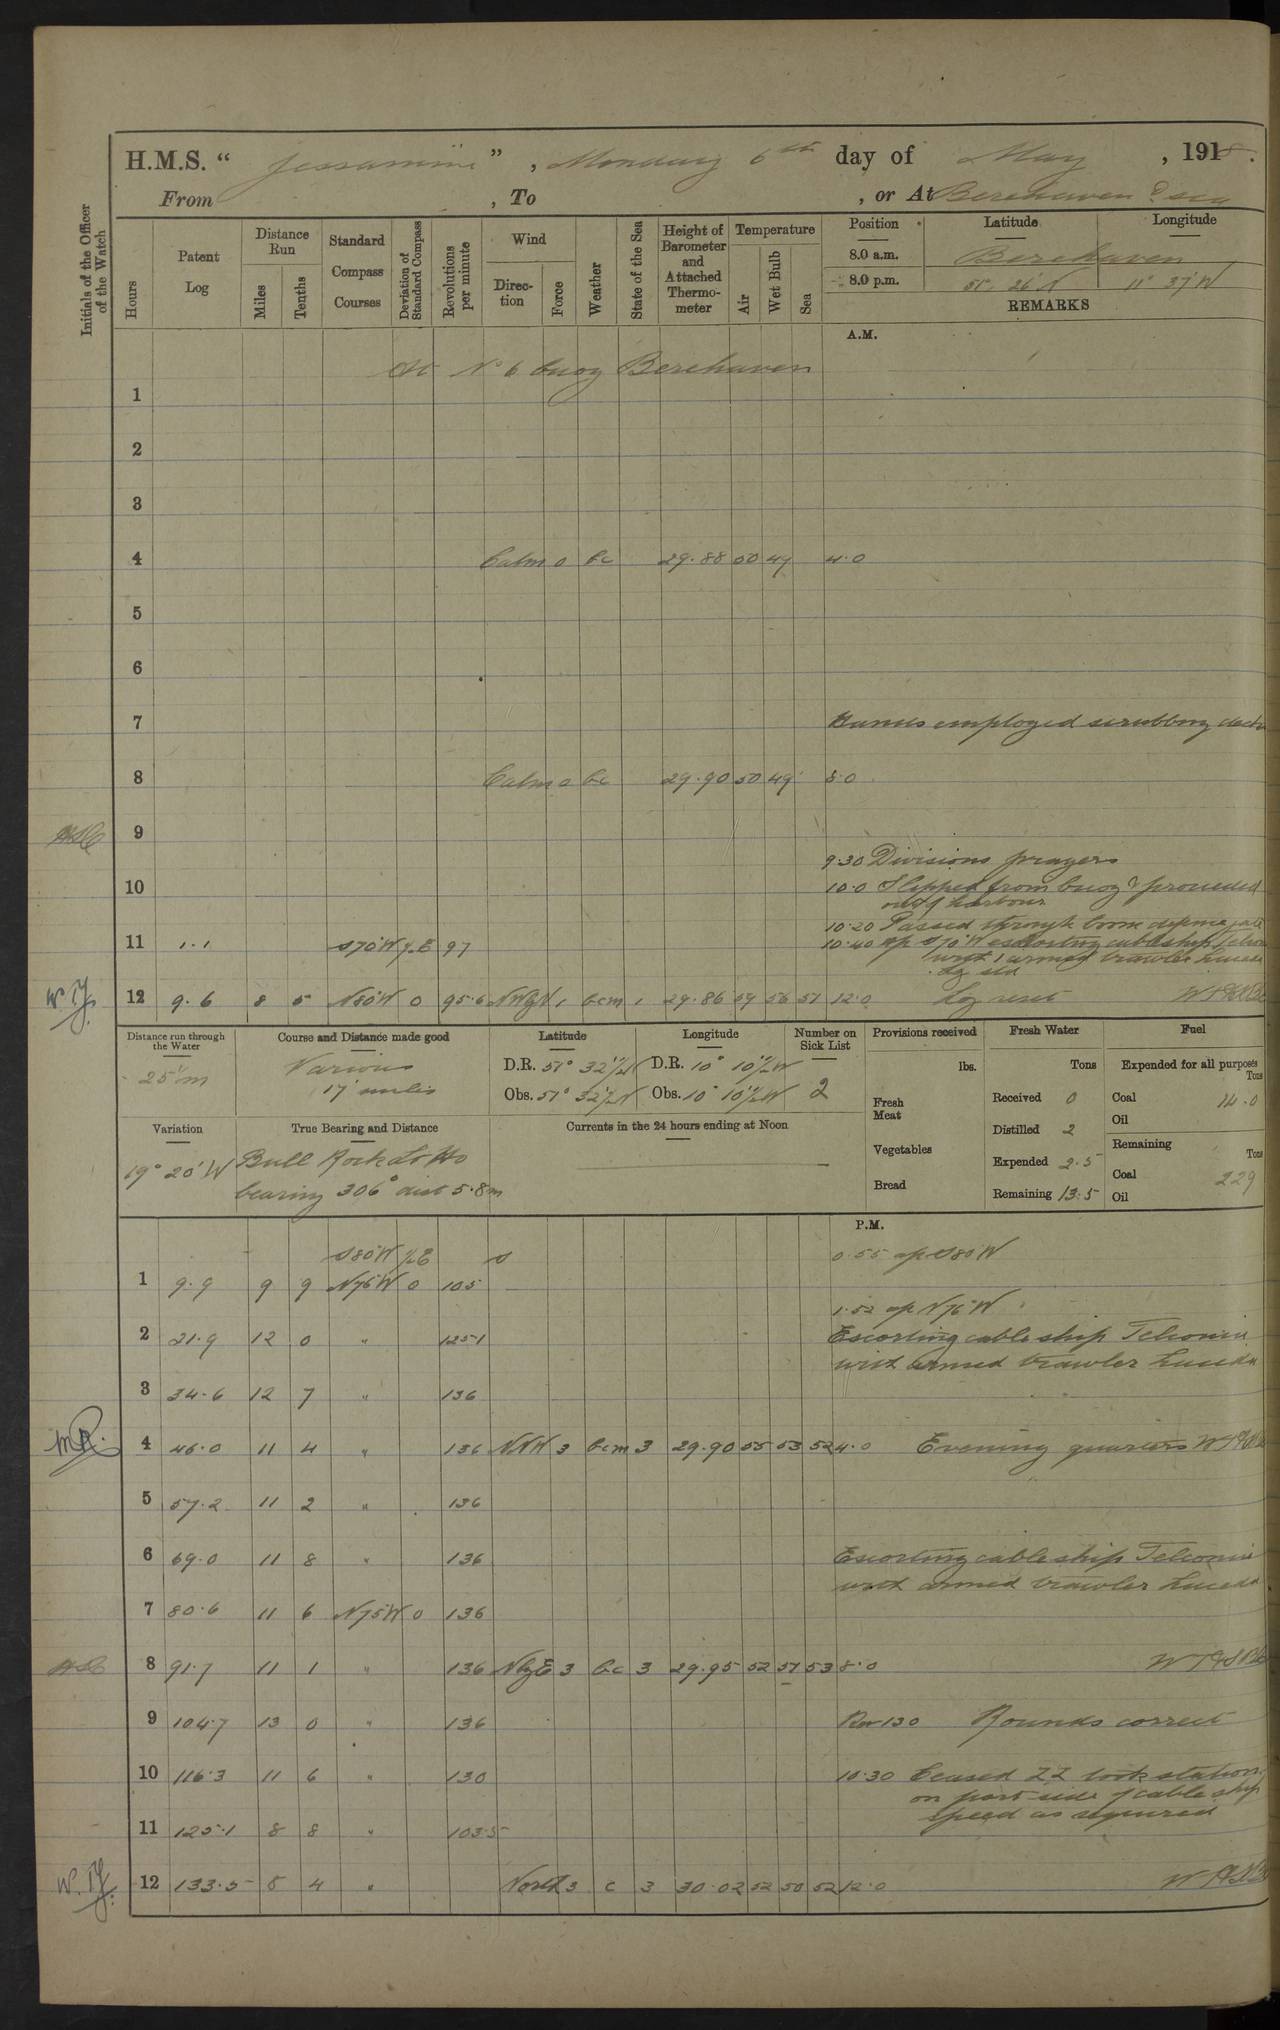 H.M.S. “ Jessamine ” , Monday 6th day of May , 1918.
From , To , or At Berehaven & sea
Initials of the Officer of the Watch
Hours
Patent Log
Distance Run
Miles
Tenths
Standard Compass Courses
Deviation of Standard Compass
Revolutions per minute
Wind
Direction
Force
Weather
State of the Sea
Height of Barometer and Attached Thermometer
Temperature
Air
Wet Bulb
Sea
Position Latitude Longitude
8.0 a.m. Berehaven
8.0 p.m. 51° 26' N 11° 37' W
REMARKS
A.M.
At No 6 buoy Berehaven
1
2
3
4 Calm 0 bc 29.88 50 49 4.0
5
6
7 Hands employed scrubbing decks
8 Calm 0 bc 29.90 50 49 8.0
9
9.30 Divisions prayers
10 10.0 Slipped from buoy & proceeded
out of harbour
10.20 Passed through boom defence gate
11 1.1 S70°W ½E 97 10.40 a/c S70°W escorting cable ship Telconia
with 1 armed trawler Lucida
Log std
W.Y. 12 9.6 8 5 N80W 0 95.6 NWbyN 1 bcm 1 29.86 59 56 51 12.0 Log reset
Distance run through the Water
25 m
Course and Distance made good
Various
17 miles
Latitude
D.R. 51° 32½' N
Obs. 51° 32½' N
Longitude
D.R. 10° 10½' W
Obs. 10° 10½' W
Number on Sick List
2
Provisions received
lbs.
Fresh Meat
Vegetables
Bread
Fresh Water
Tons
Received 0
Distilled 2
Expended 2.5
Remaining 13.5
Fuel
Expended for all purposes
Tons
Coal 14.0
Oil
Remaining
Tons
Coal 229
Oil
Variation
19° 20' W
True Bearing and Distance
Bull Rock Lt Ho
bearing 306° dist 5.8m
Currents in the 24 hours ending at Noon
P.M.
S80W ½E 0.55 a/c S80W
1 9.9 9 9 N76W 0 105
1.52 a/c N76W
2 21.9 12 0 " 125.1 Escorting cable ship Telconia
with armed trawler Lucida
3 34.6 12 7 " 136
4 46.0 11 4 " 136 NNW 3 bcm 3 29.90 55 53 52 4.0 Evening quarters
5 57.2 11 2 " 136
6 69.0 11 8 " 136 Escorting cable ship Telconia
with armed trawler Lucida
7 80.6 11 6 N75W 0 136
8 91.7 11 1 " 136 NbyE 3 bc 3 29.95 52 51 53 8.0
9 104.7 13 0 " 136 Rev 130 Rounds correct
10 116.3 11 6 " 130 10.30 Ceased ZZ took station
on port side of cable ship
speed as required
11 125.1 8 8 " 103.5
W.Y. 12 133.5 8 4 " North 3 c 3 30.02 52 50 52 12.0